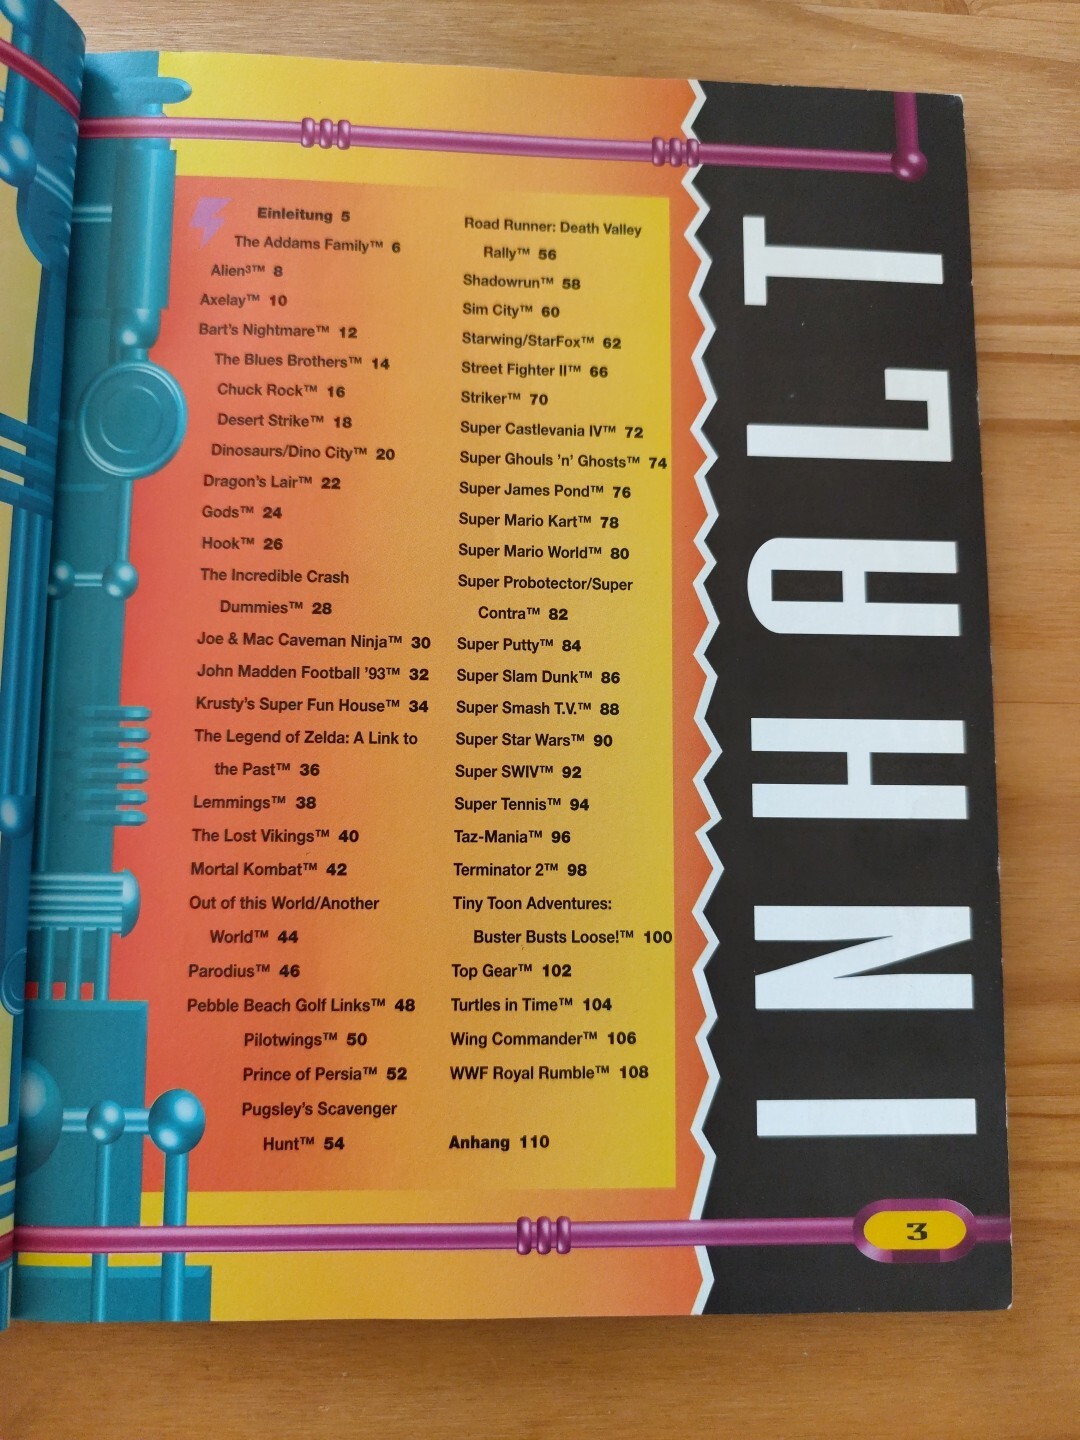 Einleitung 5
The Addams Family™ 6
Alien³™ 8
Axelay™ 10
Bart's Nightmare™ 12
The Blues Brothers™ 14
Chuck Rock™ 16
Desert Strike™ 18
Dinosaurs/Dino City™ 20
Dragon's Lair™ 22
Gods™ 24
Hook™ 26
The Incredible Crash
Dummies™ 28
Joe & Mac Caveman Ninja™ 30
John Madden Football '93™ 32
Krusty's Super Fun House™ 34
The Legend of Zelda: A Link to
the Past™ 36
Lemmings™ 38
The Lost Vikings™ 40
Mortal Kombat™ 42
Out of this World/Another
World™ 44
Parodius™ 46
Pebble Beach Golf Links™ 48
Pilotwings™ 50
Prince of Persia™ 52
Pugsley's Scavenger
Hunt™ 54
Road Runner: Death Valley
Rally™ 56
Shadowrun™ 58
Sim City™ 60
Starwing/StarFox™ 62
Street Fighter II™ 66
Striker™ 70
Super Castlevania IV™ 72
Super Ghouls 'n' Ghosts™ 74
Super James Pond™ 76
Super Mario Kart™ 78
Super Mario World™ 80
Super Probotector/Super
Contra™ 82
Super Putty™ 84
Super Slam Dunk™ 86
Super Smash T.V.™ 88
Super Star Wars™ 90
Super SWIV™ 92
Super Tennis™ 94
Taz-Mania™ 96
Terminator 2™ 98
Tiny Toon Adventures:
Buster Busts Loose!™ 100
Top Gear™ 102
Turtles in Time™ 104
Wing Commander™ 106
WWF Royal Rumble™ 108
Anhang 110
INHALT
3